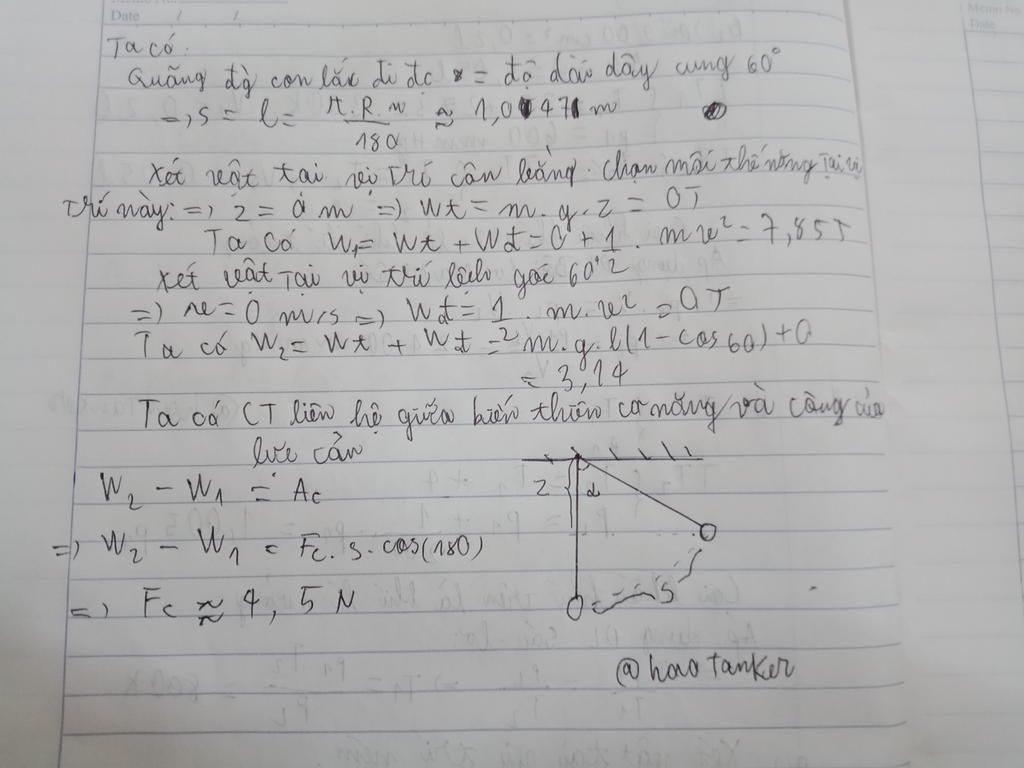 Date / /
Memo No.
Date
Ta có.
Quãng đg con lắc đi đc = độ dài dây cung 60°
=> s = l = π.R.n / 180 ≈ 1,0471 m
Xét vật tại vị trí cân bằng. Chọn mốc thế năng tại vị
trí này: => z = 0 m => Wt = m.g.z = 0J
Ta có W1 = Wt + Wđ = 0 + 1/2 . mv² = 7,85J
Xét vật tại vị trí lệch góc 60°
=> v = 0 m/s => Wđ = 1/2 . m.v² = 0J
Ta có W2 = Wt + Wđ = m.g.l(1-cos60)+0
= 3,14
Ta có CT liên hệ giữa biến thiên cơ năng và công của
lực cản
W2 - W1 = Ac
=> W2 - W1 = Fc.s.cos(180)
=> Fc ≈ 4,5 N
Z α
S
@haotanker